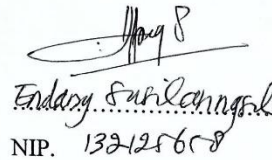 Endang Susilaningsih
NIP. 132125658